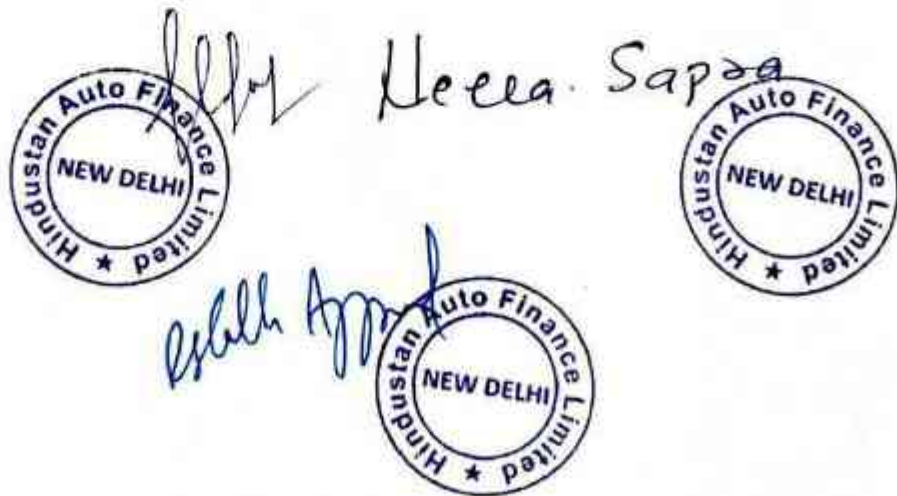 Sapra
Hindustan Auto Finance Limited ★
NEW DELHI
Hindustan Auto Finance Limited ★
NEW DELHI
Hindustan Auto Finance Limited ★
NEW DELHI